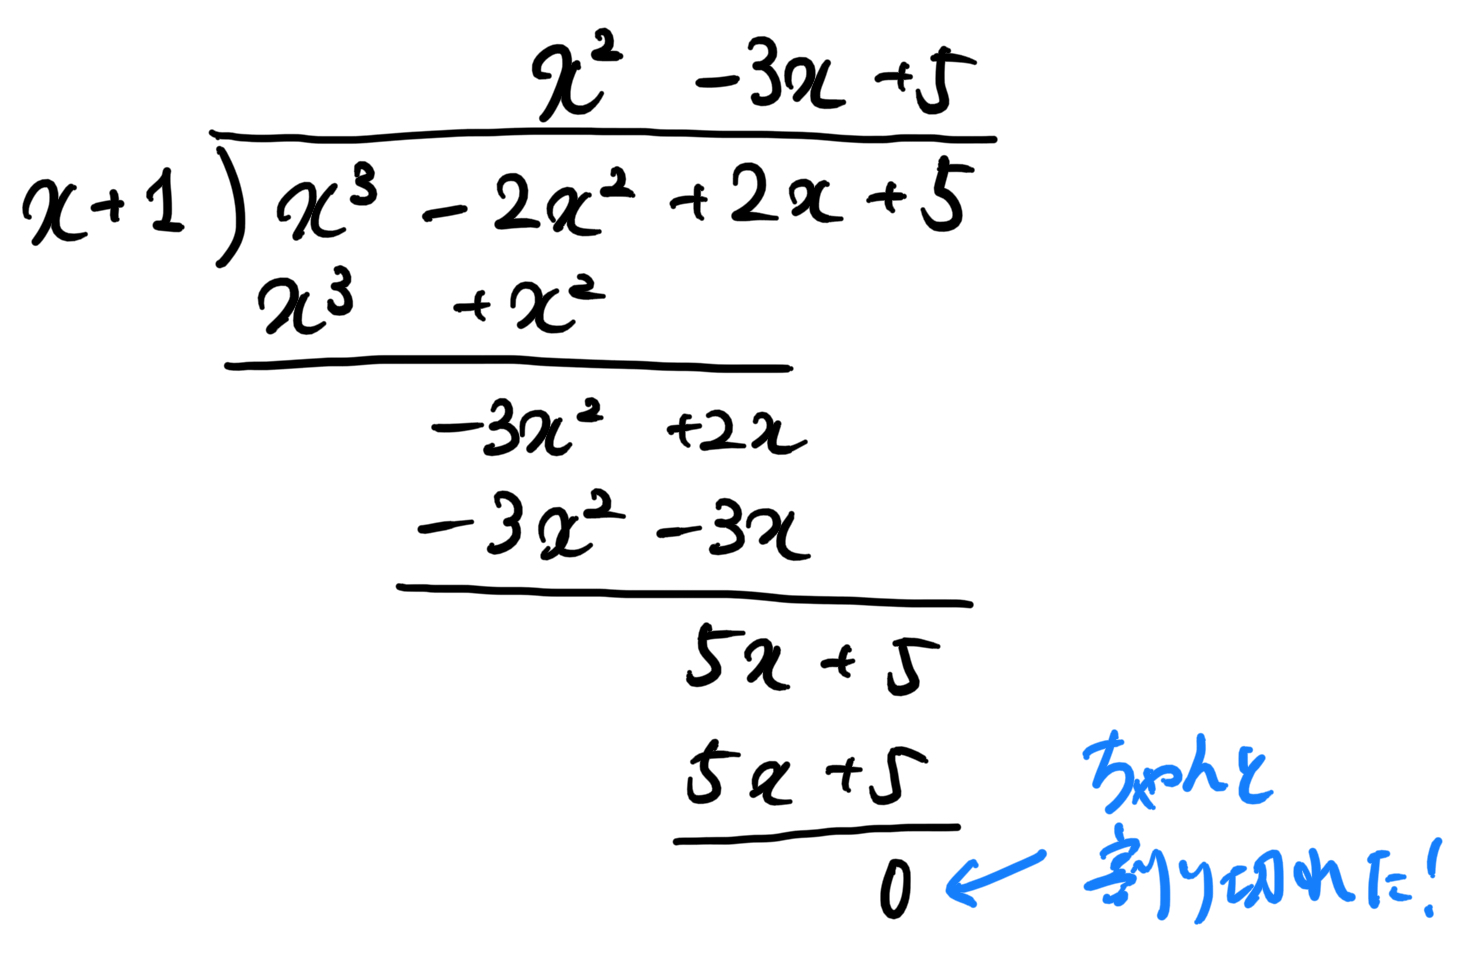 x² -3x +5
x+1 ) x³ - 2x² +2x +5
x³ +x²
-3x² +2x
-3x² -3x
5x + 5
5x +5
0 ←
ちゃんと
割り切れた!